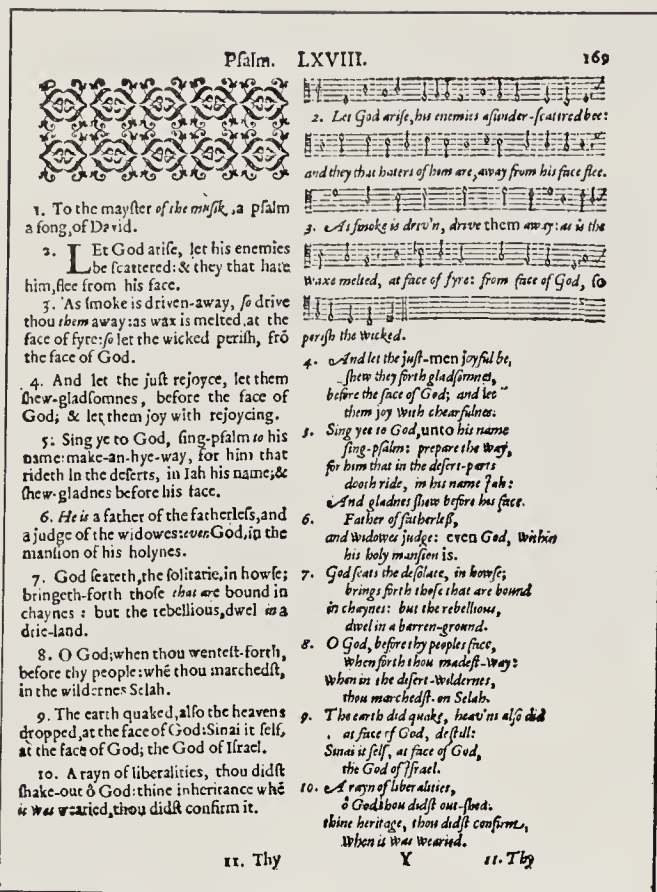 Psalm. LXVIII. 169
1. To the mayſter of the muſik, a pſalm
a ſong, of David.
2. LEt God ariſe, let his enemies
be ſcattered: & they that hate
him, flee from his face.
3. As ſmoke is driven-away, ſo drive
thou them away: as wax is melted, at the
face of fyre: ſo let the wicked periſh, frō
the face of God.
4. And let the juſt rejoyce, let them
ſhew-gladſomnes, before the face of
God; & let them joy with rejoycing.
5. Sing ye to God, ſing-pſalm to his
name: make-an-hye-way, for him that
rideth in the deſerts, in Iah his name; &
ſhew-gladnes before his face.
6. He is a father of the fatherleſs, and
a judge of the widowes: even God, in the
manſion of his holynes.
7. God ſeateth, the ſolitarie, in howſe;
bringeth-forth thoſe that are bound in
chaynes : but the rebellious, dwel in a
drie-land.
8. O God; when thou wenteſt-forth,
before thy people: whē thou marchedſt,
in the wildernes Selah.
9. The earth quaked, alſo the heavens
dropped, at the face of God: Sinai it ſelf,
at the face of God; the God of Iſrael.
10. A rayn of liberalities, thou didſt
ſhake-out ô God: thine inheritance whē
it was wearied, thou didſt confirm it.
11. Thy
2. Let God ariſe, his enemies aſunder-ſcattred bee:
and they that haters of him are, away from his face flee.
3. As ſmoke is driv'n, drive them away: as is the
waxe melted, at face of fyre: from face of God, ſo
periſh the wicked.
4. And let the juſt-men joyful be,
ſhew they forth gladſomnes,
before the face of God; and let
them joy with chearfulnes.
5. Sing yee to God, unto his name
ſing-pſalm: prepare the way,
for him that in the deſert-parts
dooth ride, in his name Jah:
And gladnes ſhew before his face.
6. Father of fatherleſs,
and widowes judge: even God, within
his holy manſion is.
7. God ſeats the deſolate, in howſe;
brings forth thoſe that are bound
in chaynes: but the rebellious,
dwel in a barren-ground.
8. O God, before thy peoples face,
when forth thou madeſt-way:
when in the deſert-wildernes,
thou marchedſt-on Selah.
9. The earth did quake, heav'ns alſo did
at face of God, deſtill:
Sinai it ſelf, at face of God,
the God of Iſrael.
10. A rayn of liberalities,
ô God thou didſt out-ſhed:
thine heritage, thou didſt confirm,
when it was wearied.
Y 11. Thy